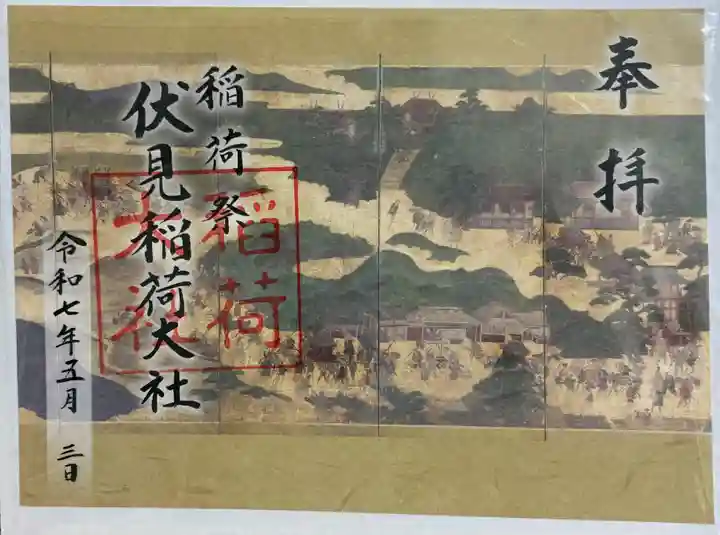 奉拝
稲荷祭
伏見稲荷大社
稲荷
大社
令和七年五月 三日